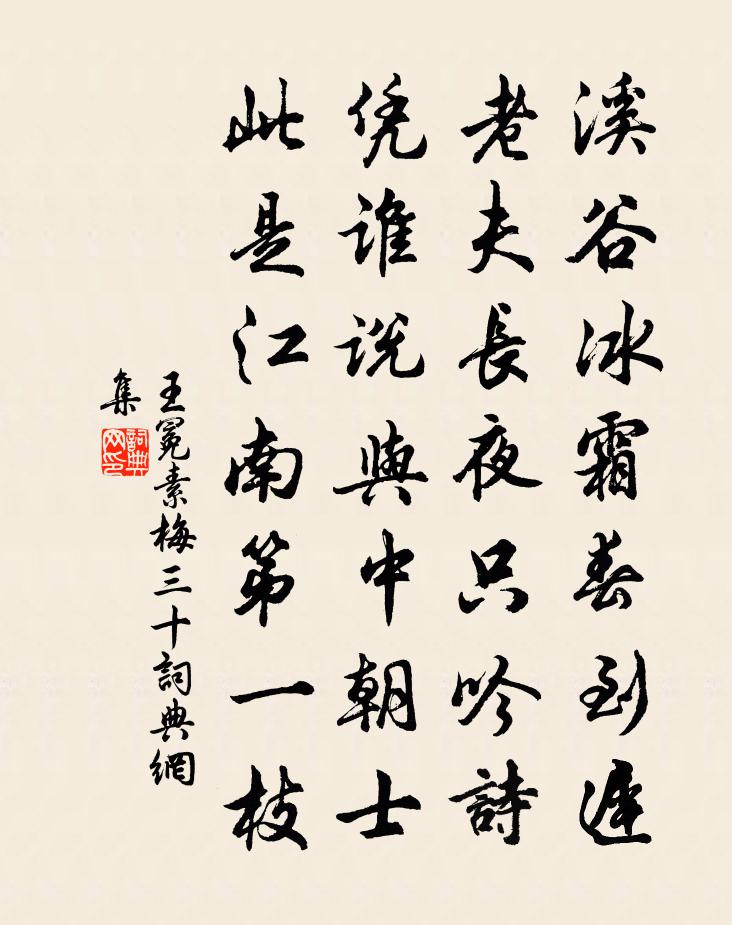 溪谷冰霜春到遲
老夫長夜只吟詩
凭誰説與中朝士
此是江南第一枝
王冕素梅三十詞典網
集
詞典
网印